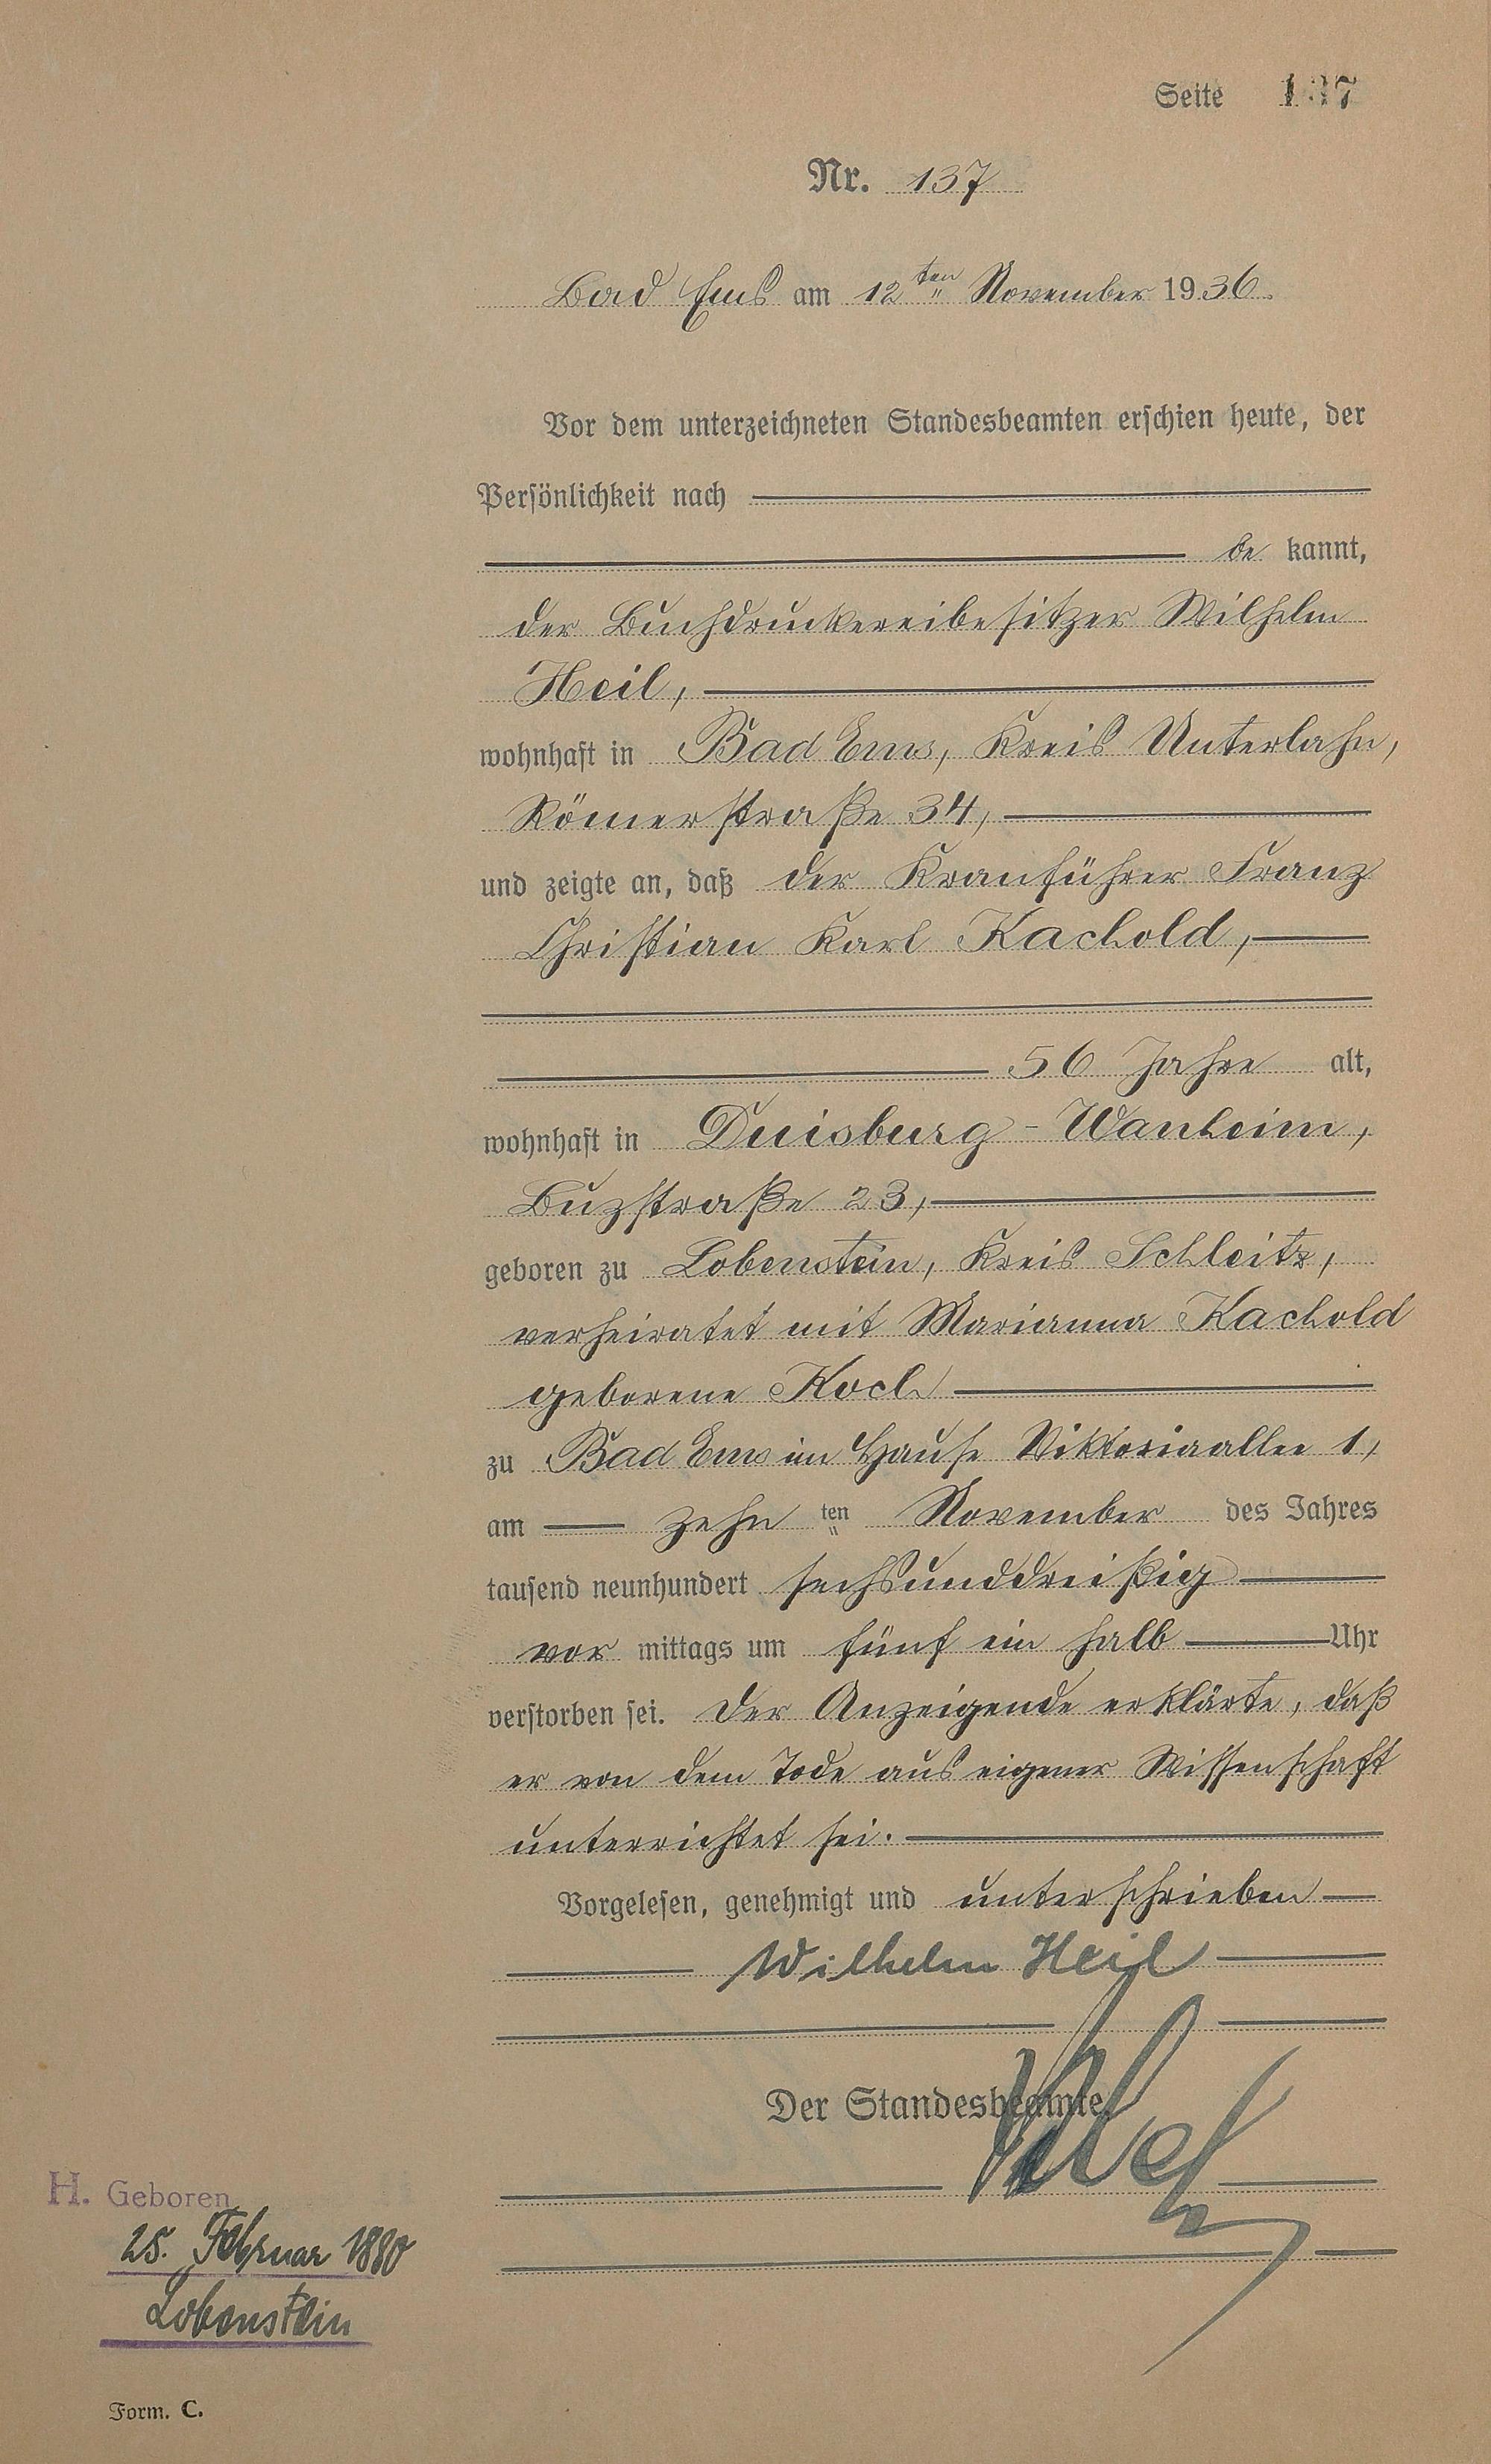 Seite 137
Nr. 137
Bad Ems am 12ten November 1936.
Vor dem unterzeichneten Standesbeamten erschien heute, der
Persönlichkeit nach
be kannt,
der Buchdruckereibesitzer Wilhelm
Heil,
wohnhaft in Bad Ems, Kreis Unterlahn,
Römerstraße 34,
und zeigte an, daß der Kranführer Franz
Christian Karl Kachold,
56 Jahre alt,
wohnhaft in Duisburg-Wanheim,
Buzstraße 23,
geboren zu Lobenstein, Kreis Schleitz,
verheiratet mit Marianna Kachold
geborene Koch
zu Bad Ems im Hause Viktoriaallee 1,
am zehn ten November des Jahres
tausend neunhundert sechsunddreißig
vor mittags um fünf ein halb Uhr
verstorben sei. Der Anzeigende erklärte, daß
er von dem Tode aus eigener Wissenschaft
unterrichtet sei.
Vorgelesen, genehmigt und unterschrieben
Wilhelm Heil
Der Standesbeamte.
H. Geboren
25. Februar 1880
Lobenstein
Form. C.